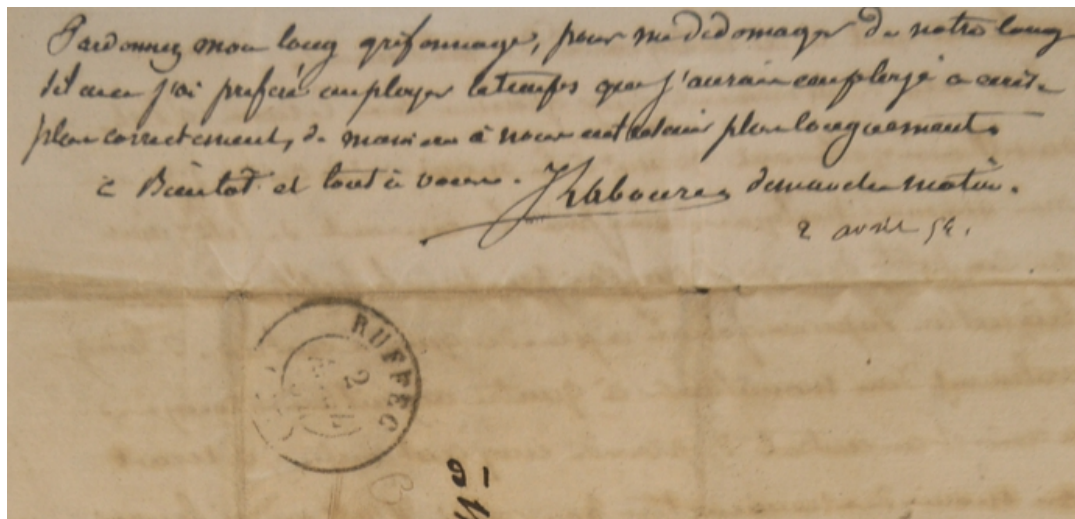 Pardonnez mon long grifonnage, pour me dédomager de notre long
silence j'ai preferé employer le temps que j'aurais employé a ecrire
plus correctement, de manière à nous entretenir plus longuement.
à Bientot et tout à vous. JRabourez dimanche matin.
2 avril 54.
RUFFEC
2
AVRIL